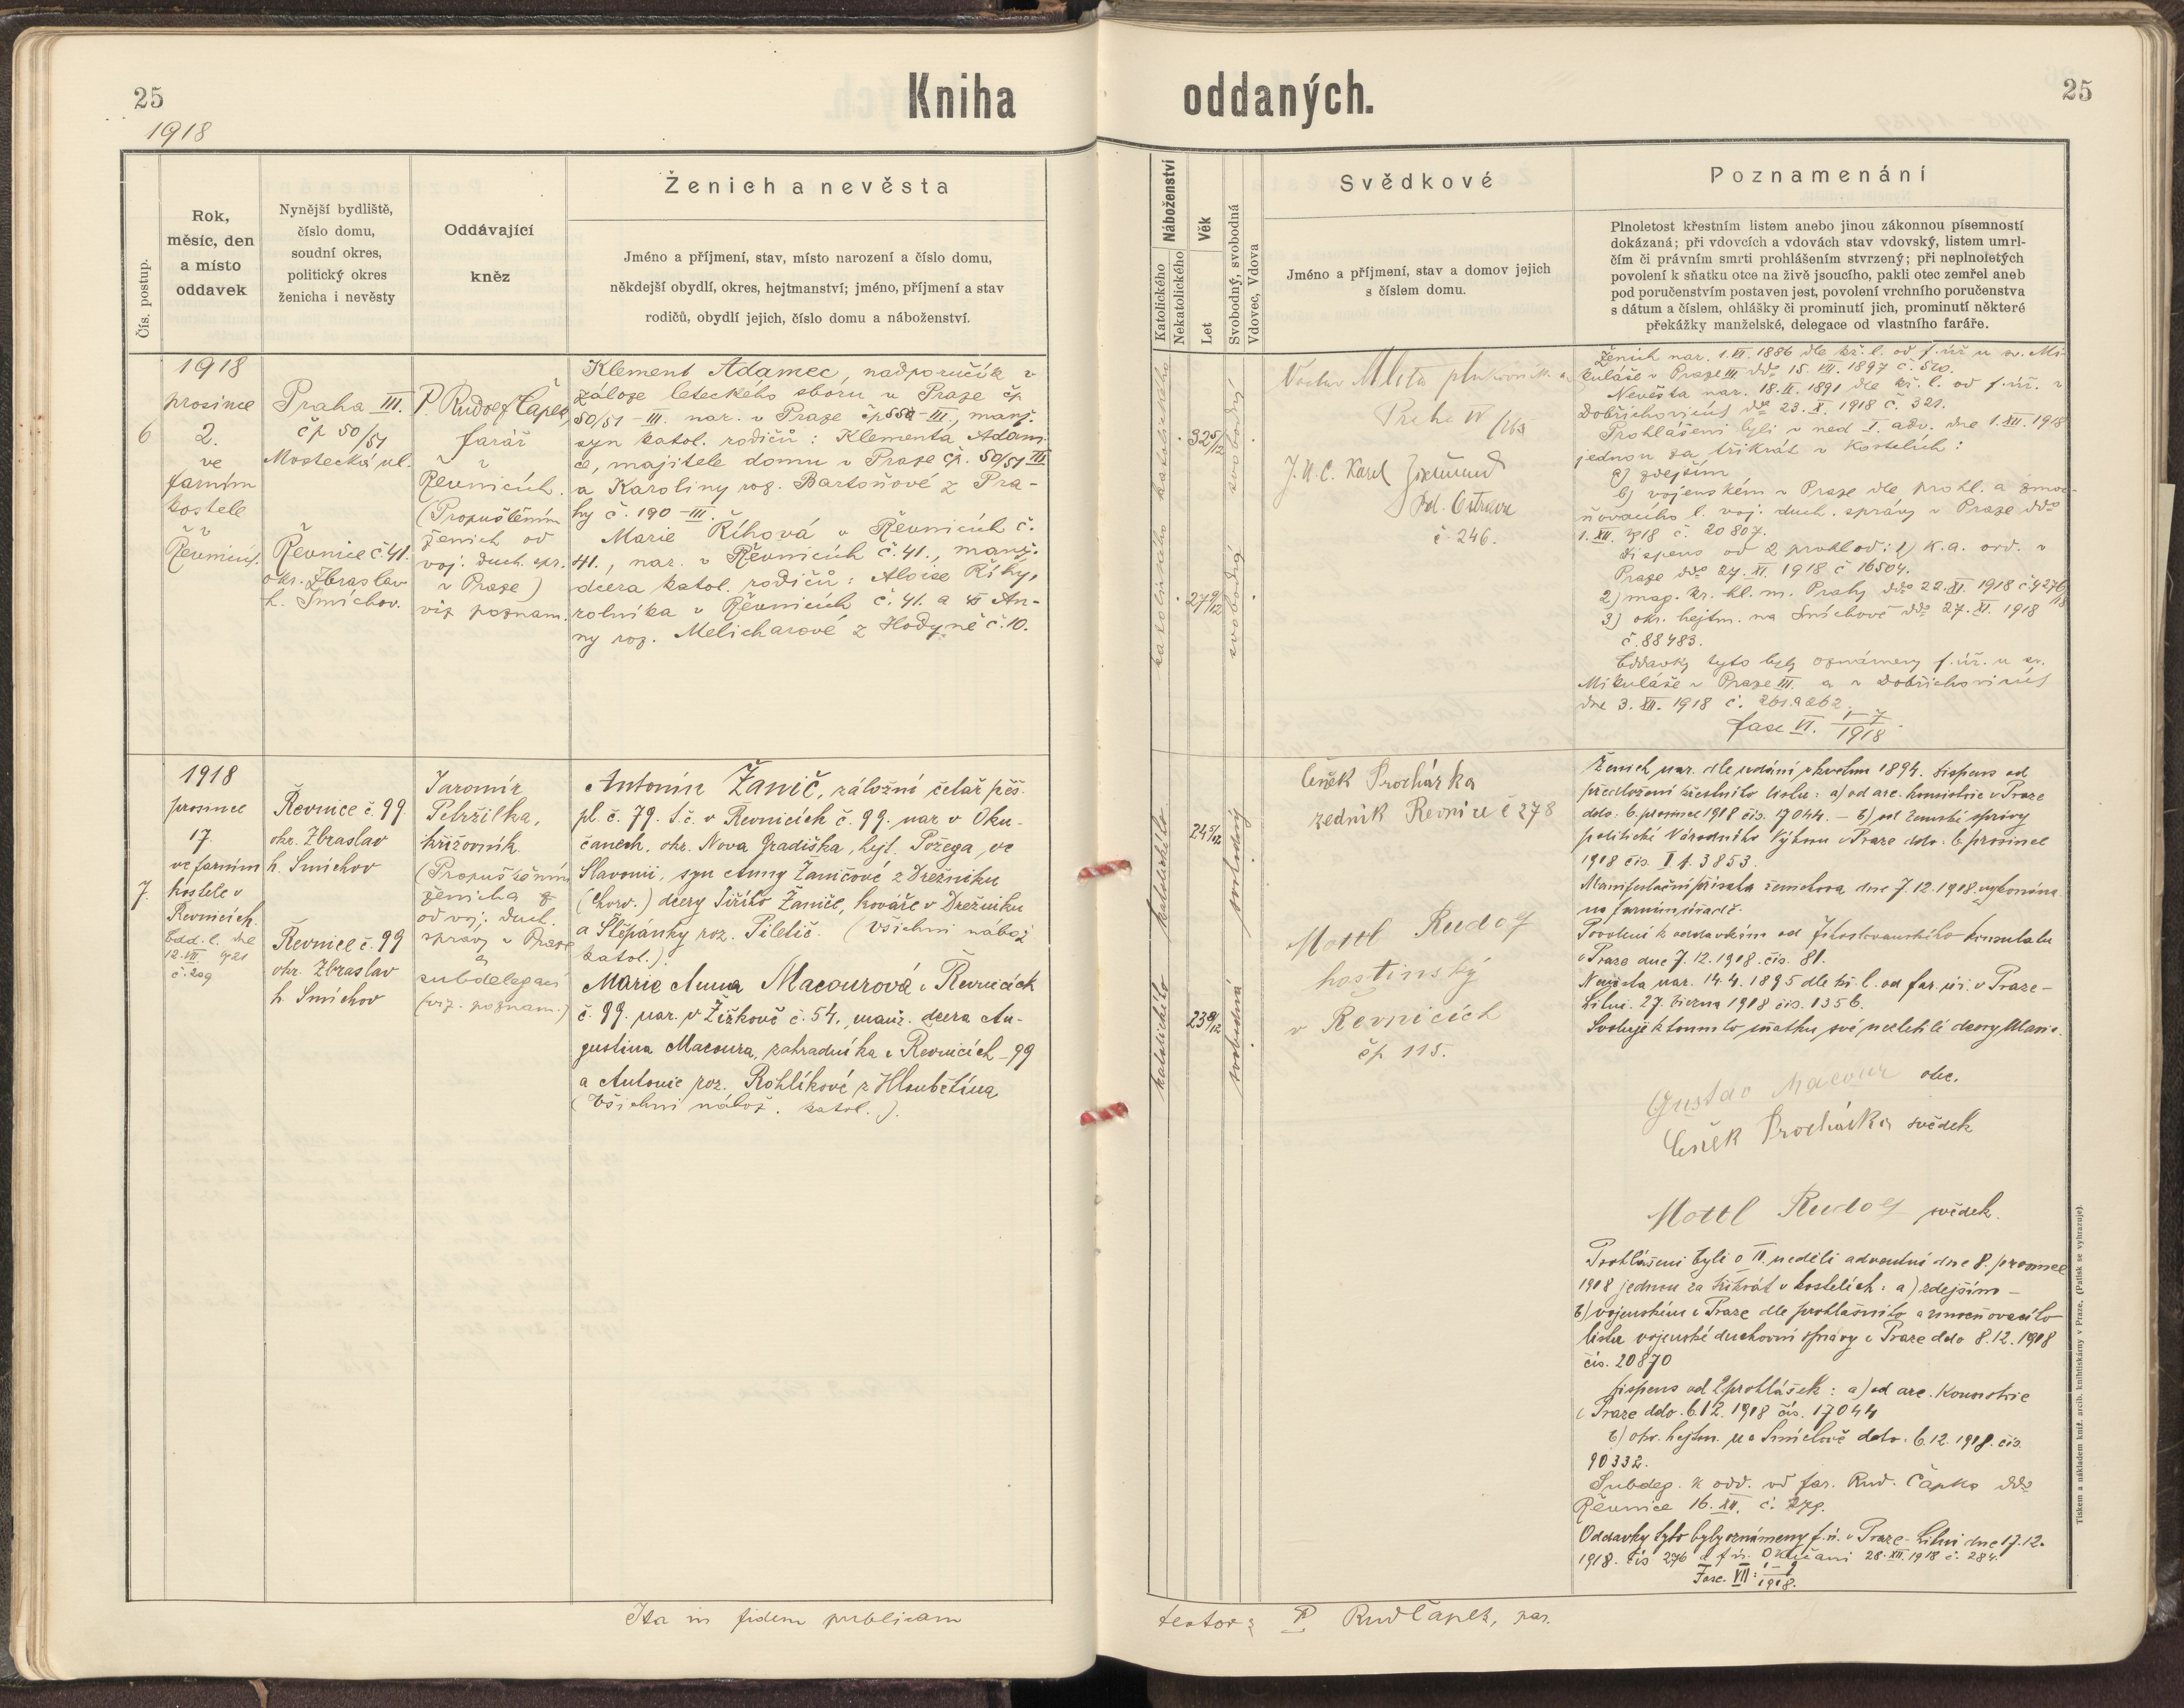 25
Kniha oddaných.
25
1918
Čís. postup.
Rok,
měsíc, den
a místo
oddavek
Nynější bydliště,
číslo domu,
soudní okres,
politický okres
ženicha i nevěsty
Oddávající
kněz
Ženich a nevěsta
Jméno a příjmení, stav, místo narození a číslo domu,
někdejší obydlí, okres, hejtmanství; jméno, příjmení a stav
rodičů, obydlí jejich, číslo domu a náboženství.
Náboženství
Katolického
Nekatolického
Věk
Let
Svobodný, svobodná
Vdovec, Vdova
Svědkové
Jméno a příjmení, stav a domov jejich
s číslem domu.
Poznamenání
Plnoletost křestním listem anebo jinou zákonnou písemností
dokázaná; při vdovcích a vdovách stav vdovský, listem umrl-
čím či právním smrti prohlášením stvrzený; při neplnoletých
povolení k sňatku otce na živě jsoucího, pakli otec zemřel aneb
pod poručenstvím postaven jest, povolení vrchního poručenstva
s dátum a číslem, ohlášky či prominutí jich, prominutí některé
překážky manželské, delegace od vlastního faráře.
6
1918
prosince
2.
ve
farním
kostele
v
Řevnicích.
Praha III.
čp 50/51
Mostecká ul.
Řevnice č. 41.
okr. Zbraslav
h. Smíchov.
P. Rudolf Čapek,
farář
v
Řevnicích.
(Propuštěním
ženich od
voj. duch. spr.
v Praze)
viz poznam.
Klement Adamec, nadporučík v
záloze leteckého sboru v Praze čp
50/51-III. nar. v Praze čp 554-III., manž.
syn katol. rodičů: Klementa Adam-
ce, majitele domu v Praze čp. 50/51 III
a Karoliny roz. Bartoňové z Pra-
hy č. 190-III.
Marie Říhová v Řevnicích č.
41., nar. v Řevnicích č. 41., manž.
dcera katol. rodičů: Aloise Říhy,
rolníka v Řevnicích č. 41. a An-
ny roz. Melicharové z Hodyně č. 10.
katolického
katolického
32 5/12
27 9/12
svobodný
svobodná
Václav Mleta
Praha IV
J.U.C. Karel
Ostrava
č 246.
Ženich nar. 1. VI. 1886 dle kř. l. od f. úř u sv. Mi-
kuláše v Praze III ddo 15. VII. 1897 č. 520.
Nevěsta nar. 18. II. 1891 dle kř. l. od f. úř. v
Dobřichovicích ddo 23. X. 1918 č. 321.
Prohlášeni byli v ned I. adv. dne 1. XII. 1918
jednou za třikrát v kostelích:
a) zdejším
b) vojenském v Praze dle prohl. a zmoc-
ňovacího l. voj. duch. správy v Praze ddo
1. XII. 1918 č. 20807.
Dispens od 2 prohl od: 1) k. a. ord. v
Praze ddo 27. XI. 1918 č 16504.
2) mag. kr. hl. m. Prahy ddo 22. XI. 1918 č 4276/18
3) okr. hejtm. na Smíchově ddo 27. XI. 1918
č. 88483.
Oddavky tyto byly oznámeny f. úř. u sv.
Mikuláše v Praze III. a v Dobřichovicích
dne 3. XII. 1918 č. 261. a 262.
fasc VI. 1-7/1918.
7.
1918
prosince
17.
ve farním
kostele v
Řevnicích.
Odd. l. dne
12. VII. 921
č. 209
Řevnice č. 99
okr. Zbraslav
h. Smíchov
Řevnice č. 99
okr. Zbraslav
h. Smíchov
Jaromír
Petržilka,
křižovník.
(Propuštěním
ženicha
od voj. duch.
správy v Praze
a
subdelegací
(viz. poznam.)
Antonín Žanič, záložní četař pěš.
pl. č. 79. t. č. v Řevnicích č. 99. nar v Oku-
čanech, okr. Nova Gradiška, hejt. Požega, ve
Slavonii, syn Anny Žaničové z Drežniku
(Chorv.) dcery Jiřího Žaniče, kováře v Drežniku
a Štěpánky roz. Piletič. (Všichni nábož
katol.)
Marie Anna Macourová v Řevnicích
č. 99. nar. v Žižkově č. 54, manž. dcera Au-
gustina Macoura, zahradníka v Řevnicích-99
a Antonie roz. Rohlíkové z Hloubětína
(Všichni nábož. katol.).
katolického
katolického
24 5/12
23 8/12
svobodný
svobodná
Čeněk Procházka
zedník Řevnice č 278
Mottl Rudolf
hostinský
v Řevnicích
čp 115.
Ženich nar. dle udání v květnu 1894. Dispens od
předložení křestního listu: a) od arc. konsistoře v Praze
ddo. 6. prosince 1918 čís. 17044. - b) od zemské správy
politické Národního Výboru v Praze ddo. 6. prosince
1918 čís. 3853.
Manifestační přísaha ženichova dne 7.12.1918. vykonána
na farním úřadě.
Povolení k oddavkám od Jihoslovanského konsulatu
v Praze dne 7.12.1918. čís. 81.
Nevěsta nar. 14.4.1895 dle kř. l. od far. úř. v Praze-
Libni. 27. března 1918 čís. 1356.
Svoluji k tomuto sňatku své nezletilé dcery Marie.
Gustav Macour otec.
Čeněk Procházka svědek
Mottl Rudolf svědek.
Prohlášeni byli o II. neděli adventní dne 8. prosince
1918 jednou za třikrát v kostelích: a) zdejším -
b) vojenském v Praze dle prohlašního a zmocňovacího
listu vojenské duchovní správy v Praze ddo 8.12.1918
čís. 20870
Dispens od 2 prohlášek: a) od arc. Konsistoře
v Praze ddo. 6.12.1918 čís. 17044
b) okr. hejtm. na Smíchově ddo. 6.12.1918. čís.
90332.
Subdeg. k odd. od far. Rud. Čapka ddo
Řevnice 16. XII. č. 279.
Oddavky tyto byly oznámeny f. ú. v Praze-Libni dne 17.12.
1918. čís 276 a f. ú. Okučani 28. XII. 1918 č. 284.
Fasc. VII: 1-9/1918.
Tiskem a nákladem kníž. arcib. knihtiskárny v Praze. (Patisk se vyhrazuje).
Ita in fidem publicam testor: P Rud Čapek, par.